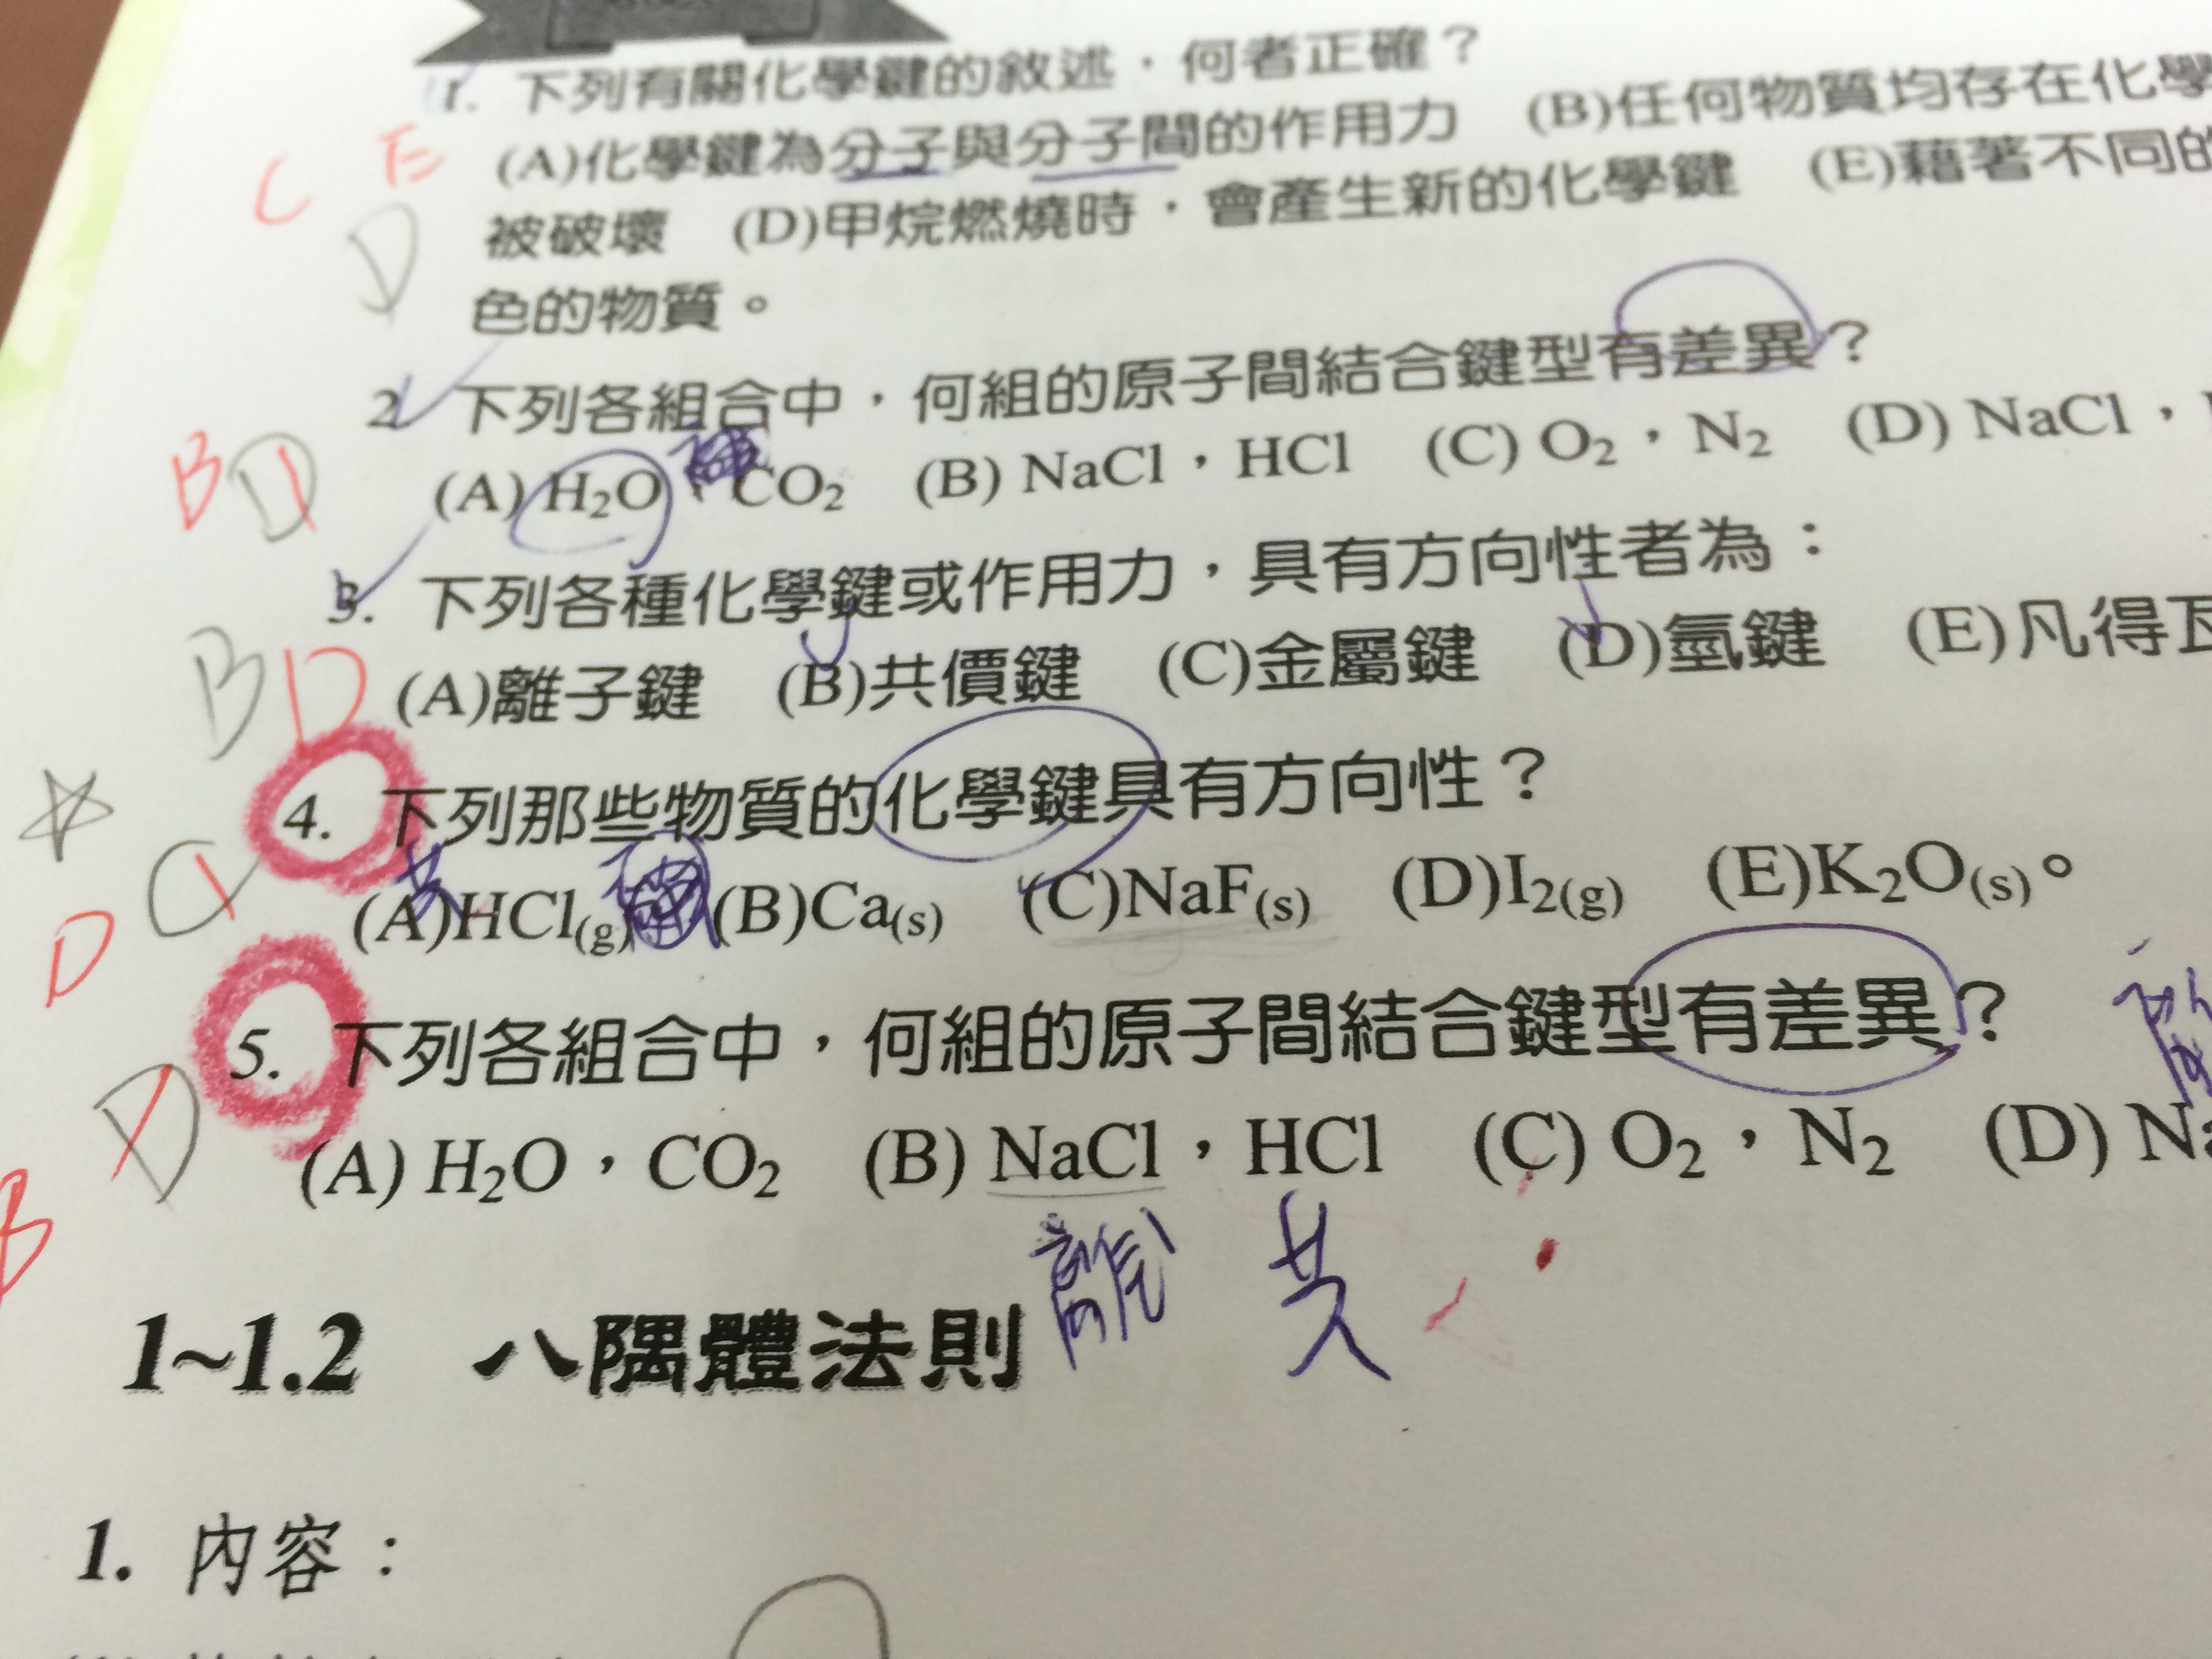 1. 下列有關化學鍵的敘述，何者正確？
(A)化學鍵為分子與分子間的作用力 (B)任何物質均存在化學
C E
被破壞 (D)甲烷燃燒時，會產生新的化學鍵 (E)藉著不同的
D
色的物質。
2. 下列各組合中，何組的原子間結合鍵型有差異？
B D
(A) H₂O，CO₂ (B) NaCl，HCl (C) O₂，N₂ (D) NaCl，
3. 下列各種化學鍵或作用力，具有方向性者為：
B D
(A)離子鍵 (B)共價鍵 (C)金屬鍵 (D)氫鍵 (E)凡得瓦
4. 下列那些物質的化學鍵具有方向性？
共
D
(A)HCl(g) (B)Ca(s) (C)NaF(s) (D)I₂(g) (E)K₂O(s)。
5. 下列各組合中，何組的原子間結合鍵型有差異？
D
B
(A) H₂O，CO₂ (B) NaCl，HCl (C) O₂，N₂ (D) Na
離 共
1~1.2 八隅體法則
1. 內容：